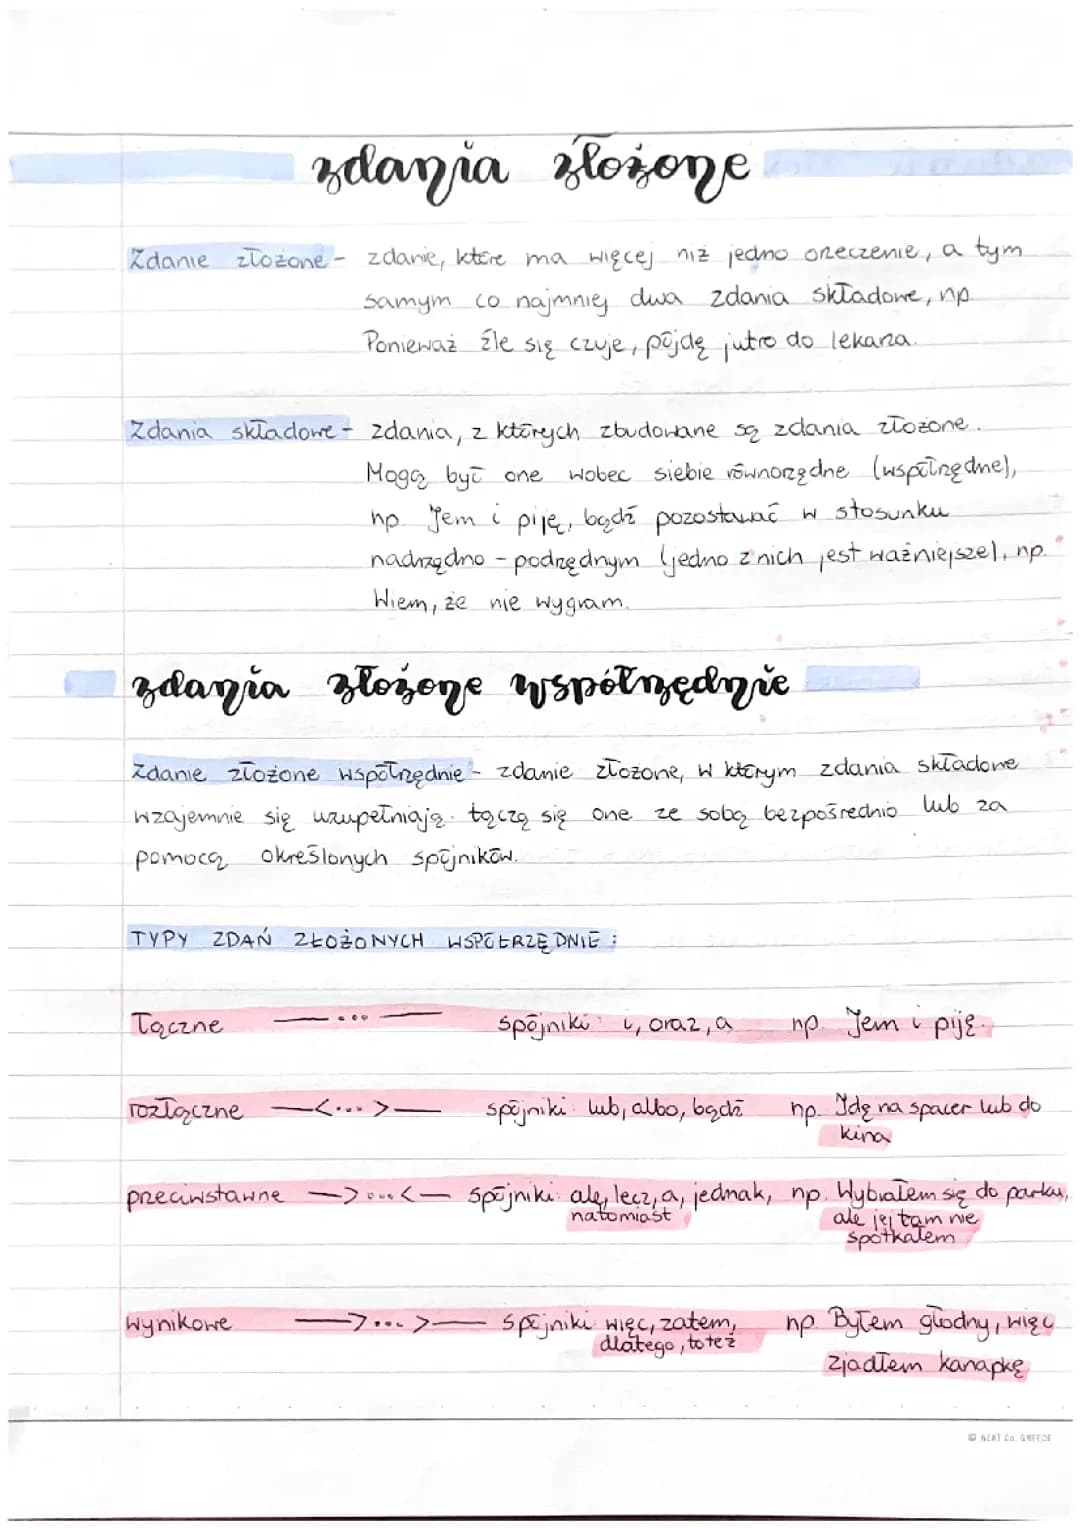 zdania złożone
Zdanie złożone - zdanie, które ma więcej niż jedno orzeczenie, a tym
samym co najmniej dwa zdania składowe, np.
Ponieważ źle się czuje, pójdę jutro do lekarza.
Zdania składowe - zdania, z których zbudowane są zdania złożone.
Mogą być one wobec siebie równorzędne (współrzędne),
np. Jem i piję, bądź pozostawać w stosunku
nadrzędno - podrzędnym (jedno z nich jest ważniejsze), np.
Wiem, że nie wygram.
zdania złożone współrzędnie
Zdanie złożone współrzędnie - zdanie złożone, w którym zdania składowe
wzajemnie się uzupełniają. Łączą się one ze sobą bezpośrednio lub za
pomocą określonych spójników.
TYPY ZDAŃ ZŁOŻONYCH WSPÓŁRZĘDNIE :
Łączne —...— spójniki: i, oraz, a np. Jem i piję.
rozłączne —<...>— spójniki: lub, albo, bądź np. Idę na spacer lub do
kina
przeciwstawne —>...<— spójniki: ale, lecz, a, jednak, np. Wybrałem się do parku,
natomiast ale jej tam nie
spotkałem
wynikowe —>...>— spójniki: więc, zatem, np. Byłem głodny, więc
dlatego, toteż
zjadłem kanapkę
© NEAT Co. GREECE